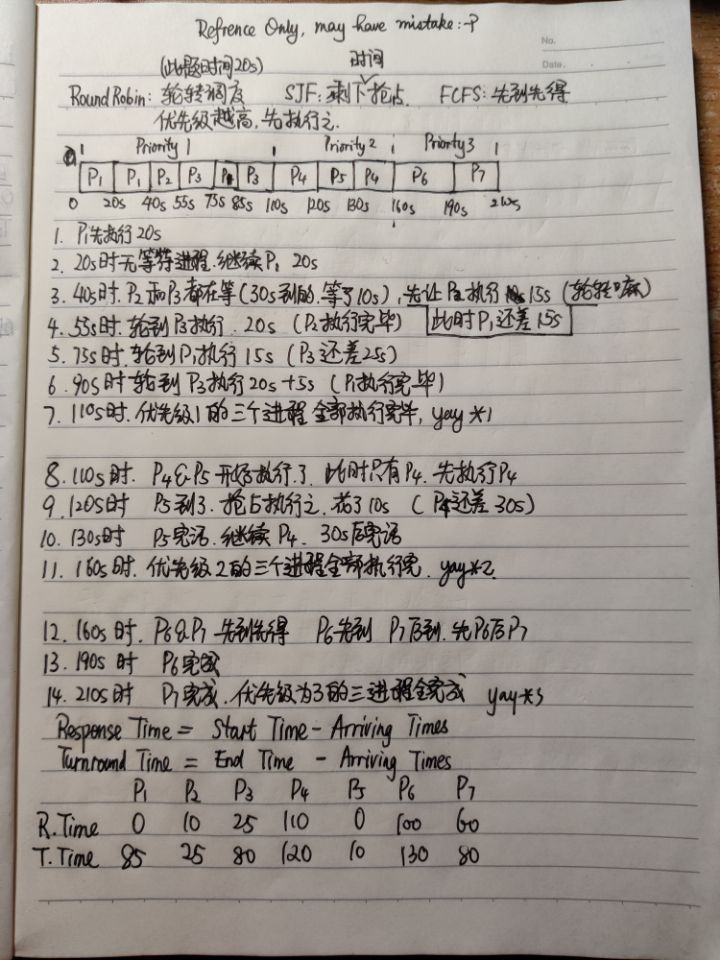 Refrence Only, may have mistake :-P
No.
Date.
(此题时间20s) 时间
Round Robin: 轮转调度 SJF: 剩下抢占 FCFS: 先到先得
优先级越高,先执行之.
Priority 1 Priority 2 Priority 3
P1 P1 P2 P3 P1 P3 P4 P5 P4 P6 P7
0 20s 40s 55s 75s 85s 110s 120s 130s 160s 190s 210s
1. P1先执行20s
2. 20s时无等待进程.继续P1 20s
3. 40s时. P2和P3都在等(30s到的.等了10s),先让P2执行 15s (轮转嘛)
4. 55s时.轮到P3执行. 20s (P2执行完毕) 此时P1还差15s
5. 75s时.轮到P1执行15s (P3还差25s)
6. 90s时轮到P3执行20s+5s (P1执行完毕)
7. 110s时.优先级1的三个进程全部执行完毕, yay*1
8. 110s时. P4&P5开始执行了.此时只有P4.先执行P4
9. 120s时 P5到了.抢占执行之.花了10s (P4还差30s)
10. 130s时 P5完活.继续P4. 30s后完活
11. 160s时.优先级2的三个进程全部执行完. yay*2
12. 160s时. P6&P7 先到先得 P6先到 P7后到.先P6后P7
13. 190s时 P6完成
14. 210s时 P7完成.优先级为3的三进程全完成 yay*3
Response Time = Start Time - Arriving Times
Turnround Time = End Time - Arriving Times
P1 P2 P3 P4 P5 P6 P7
R.Time 0 10 25 110 0 100 60
T.Time 85 25 80 120 10 130 80